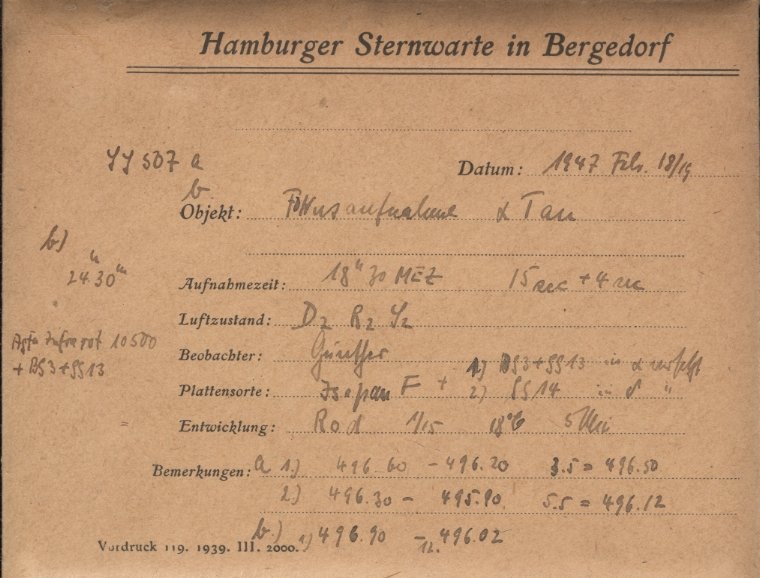 Hamburger Sternwarte in Bergedorf
507 a
Datum: 1947 Feb. 18/19
b
Objekt: Fokusaufnahme α Tau
b)
24 30
Aufnahmezeit: 18 30 MEZ 15 sec + 4 sec
Luftzustand: D2 R2 S2
Agfa Infrarot 10500
+ BG3+GG13
Beobachter: Günther
1) BG3+GG13 in α versetzt
Plattensorte: Isopan F + 2) GG14 in δ "
Entwicklung: Rod 1/15 18°C 5 Min
Bemerkungen: a 1.) 496.60 - 496.20 3.5 = 496.50
2.) 496.30 - 495.90 5.5 = 496.12
b.) 1) 496.90 - 496.02
12.
Vordruck 119. 1939. III. 2000.